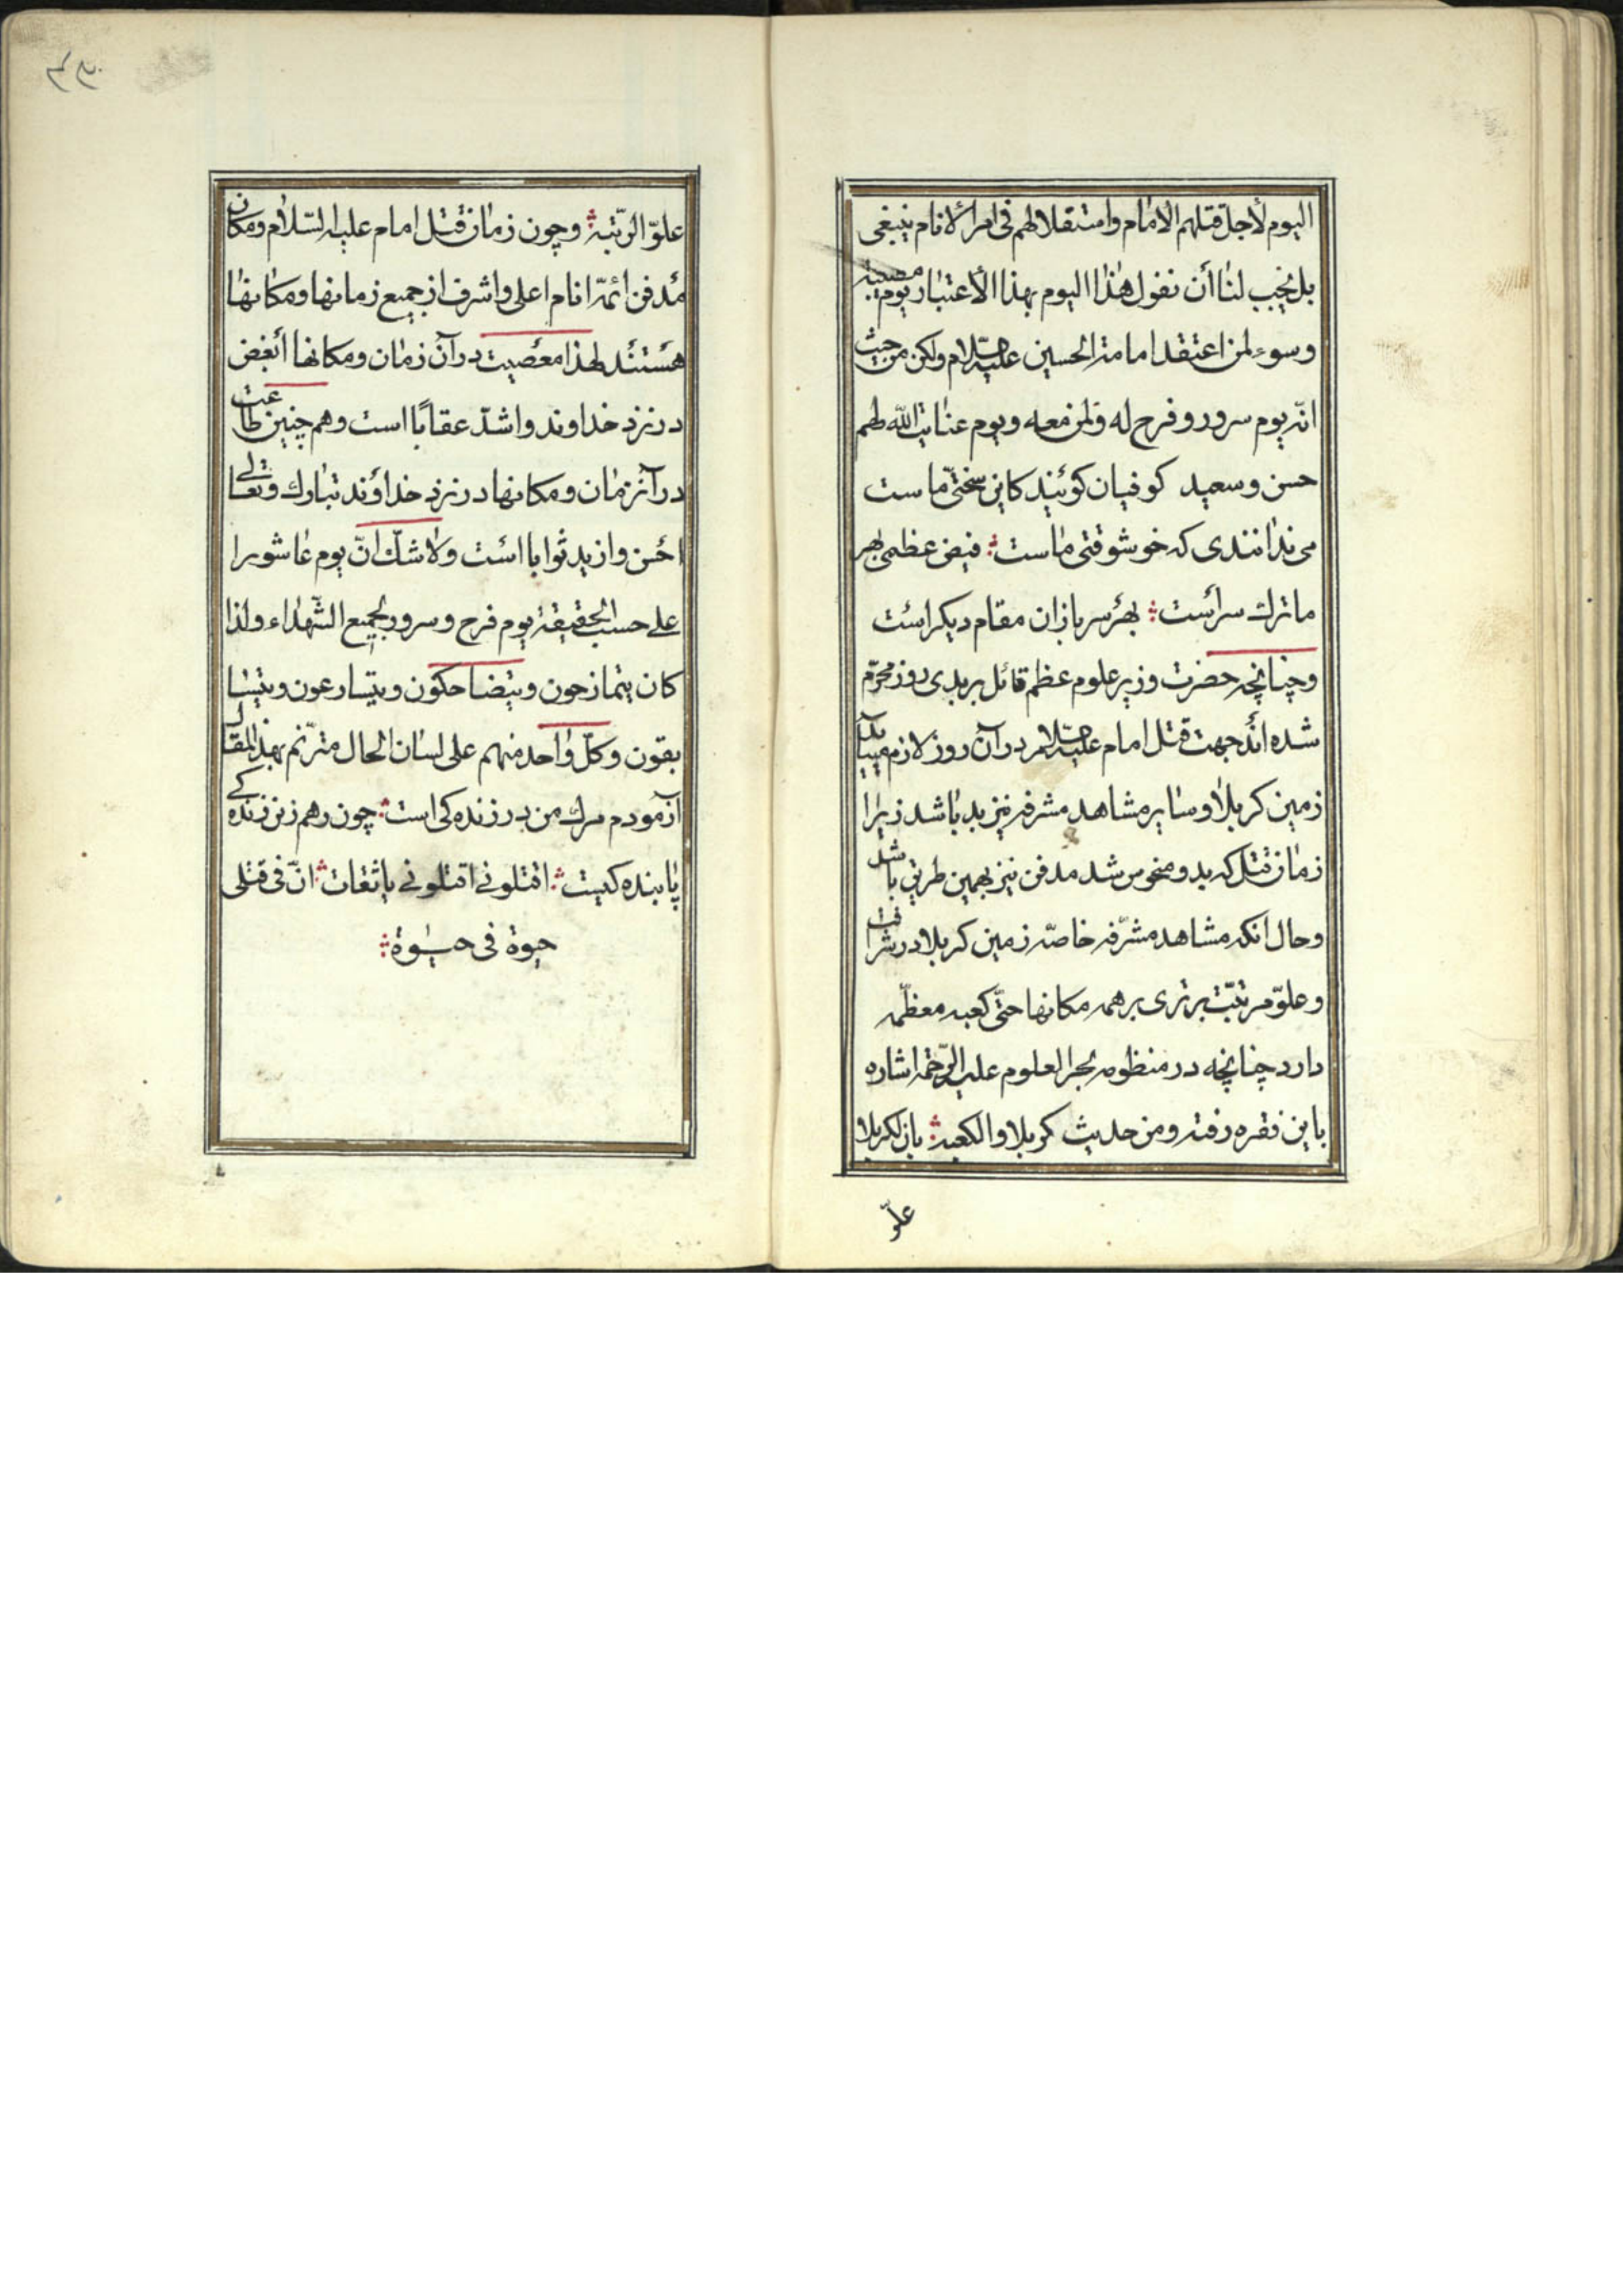 اليوم لأجل قتلهم الأمام وامتقلالهم فى امر الانام ينبغى
بل يجب لنا أن نقول هذا اليوم بهذا الأعتبار يوم مصيبة
وسوء لمن اعتقد امامة الحسين عليه السلام ولكن من حيث
انه يوم سرور و فرح له ولمن معه ويوم عنايت الله لهم
حسن وسعيد كوفيان كويند كاين سختى ماست
مى ندانندى كه خوشوقتى ماست فيض عظمى بهر
ما ترك سر است بهر سربازان مقام ديكر است
وچنانچه حضرت وزير علوم عظم قائل بر بدى روز محرم
شده اند جهت قتل امام عليه السلام در آن روز لازم ميايد
زمين كربلا وساير مشاهد مشرفه نيز بد باشد زيرا
زمان قتل كه بد و منحوس شد مدفن نيز بهمين طريق باشد
وحال انكه مشاهد مشرفه خاصه زمين كربلا در شرافت
وعلو مرتبت برترى بر همه مكانها حتى كعبه معظمه
دارد چنانچه در منظومه بحر العلوم عليه الرحمه اشاره
باين فقره رفته ومن حديث كربلا والكعبة بان لكربلا
علو
۳۳
علو الرتبة وچون زمان قتل امام عليه السلام ومكان
مدفن ائمه انام اعلى واشرف از جميع زمانها ومكانها
هستند لهذا معصيت در آن زمان ومكانها أبغض
در نزد خداوند واشد عقابا است وهم چنين طاعت
در آنزمان ومكانها در نزد خداوند تبارك وتعالى
احسن وازيد ثوابا است ولا شك ان يوم عاشورا
على حسب الحقيقة يوم فرح وسرور لجميع الشهداء ولذا
كان يتمازحون ويتضاحكون ويتسارعون ويتسا
بقون وكل واحد منهم على لسان الحال مترنم بهذا المقال
آزمودم مرك من در زنده كى است چون رهم زين زنده كى
پاينده كيست اقتلونى اقتلونى ياثقات ان فى قتلى
حيوة فى حيوة